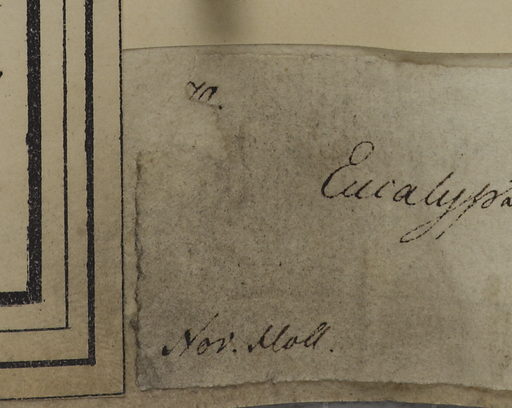 70.
Eucalypt
Nov. Holl.